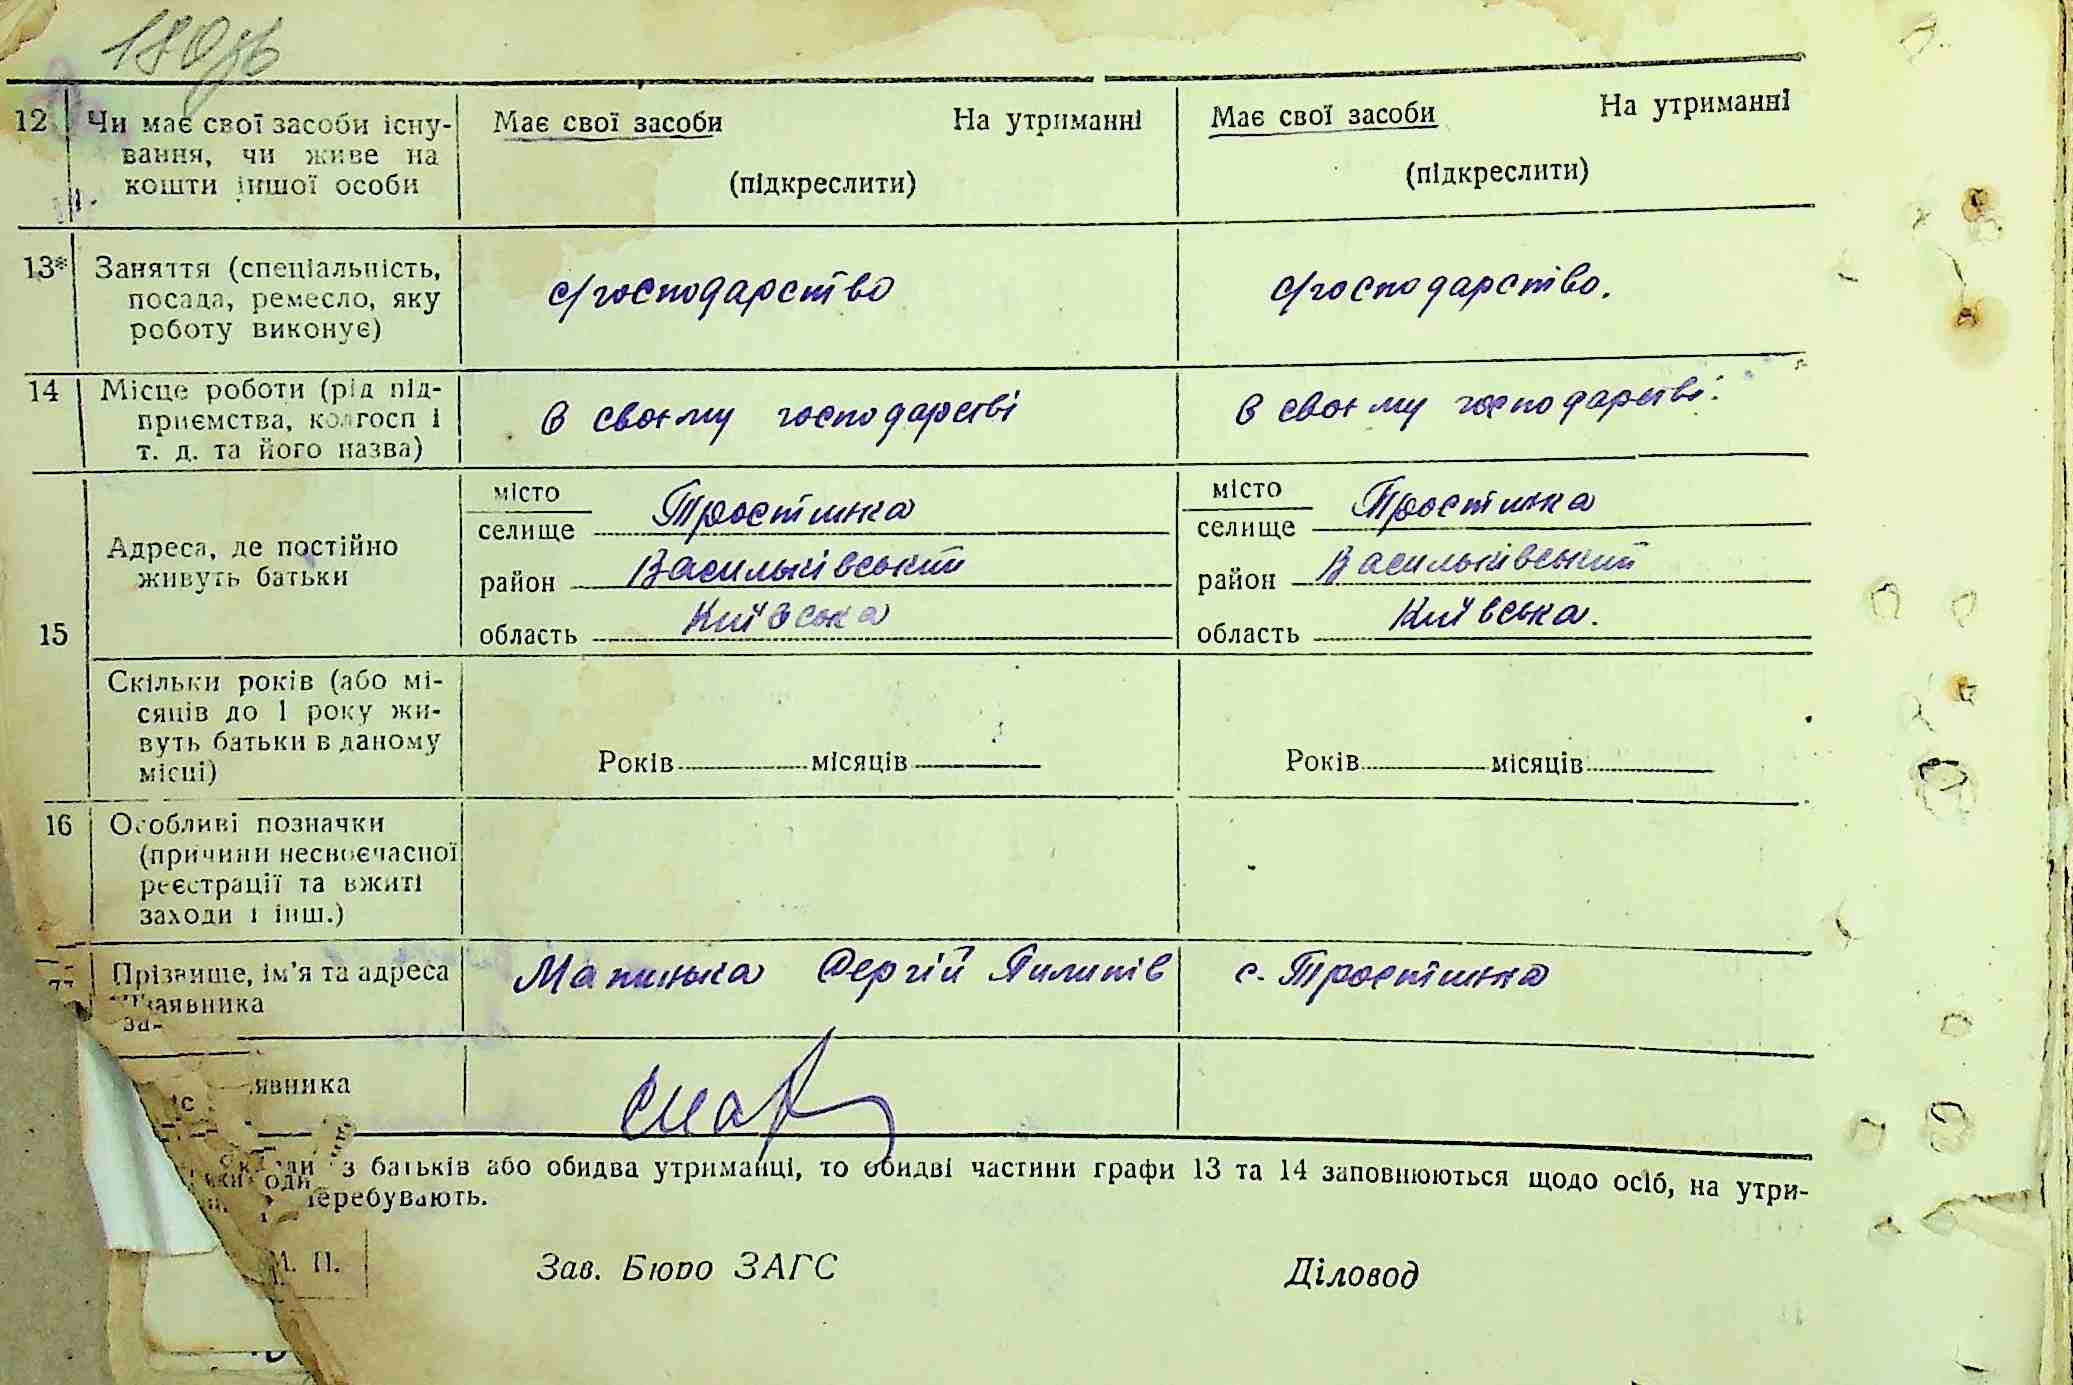 180 зв
12 Чи має свої засоби існу- Має свої засоби На утриманні Має свої засоби На утриманні
вання, чи живе на
кошти іншої особи (підкреслити) (підкреслити)
13* Заняття (спеціальність,
посада, ремесло, яку с/господарство с/господарство.
роботу виконує)
14 Місце роботи (рід під-
приємства, колгосп і в своєму господарстві в своєму господарстві.
т. д. та його назва)
місто місто
селище Тростинка селище Тростинка
Адреса, де постійно
живуть батьки район Васильківський район Васильківський
15 область Київська область Київська.
Скільки років (або мі-
сяців до 1 року жи-
вуть батьки в даному
місці) Років місяців Років місяців
16 Особливі позначки
(причини несвоєчасної
реєстрації та вжиті
заходи і інш.)
Прізвище, ім'я та адреса Сергій Пилипів с. Тростинка
заявника
явника
з батьків або обидва утриманці, то обидві частини графи 13 та 14 заповнюються щодо осіб, на утри-
перебувають.
М. П. Зав. Бюро ЗАГС Діловод